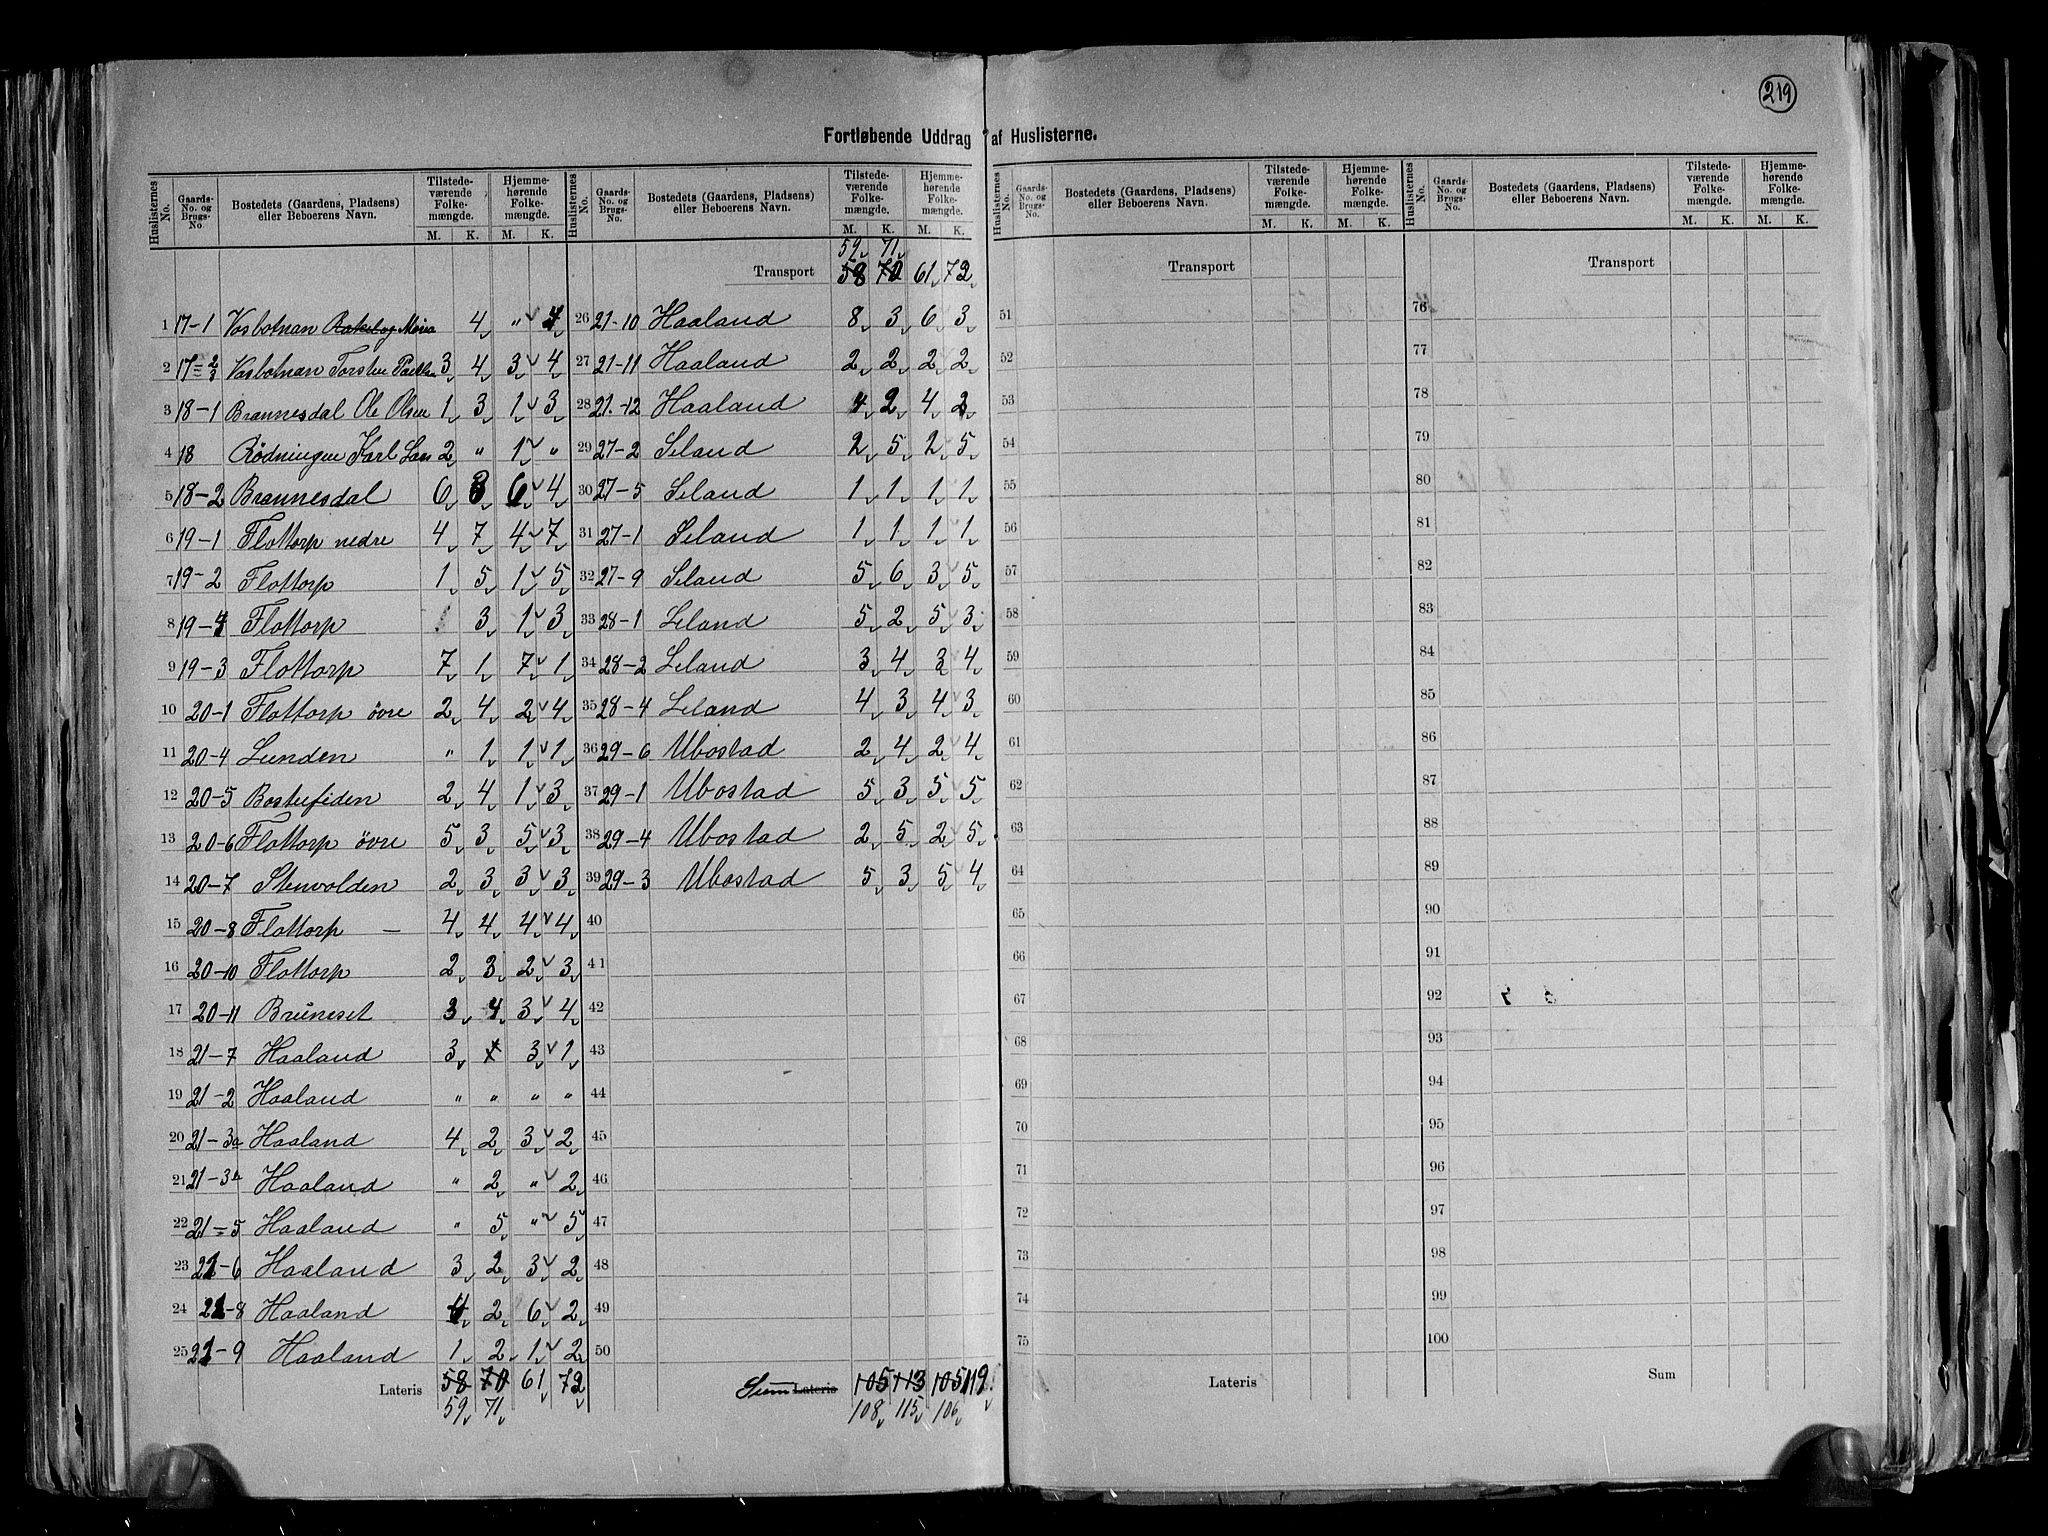 219
Fortløbende Uddrag af Huslisterne.
Huslisternes No. Gaards-No. og Brugs-No. Bostedets (Gaardens, Pladsens) eller Beboerens Navn. Tilstedeværende Folkemængde. M. K. Hjemmehørende Folkemængde. M. K.
1 17-1 Vosbotnan Rakel og Maria 4 " 4
2 17=2/3 Vosbotnan Torsten 3 4 3 4
3 18-1 Brannesdal Ole Olsen 1 3 1 3
4 18 Rødningen Karl Lars 2 " 1 "
5 18-2 Brannesdal 6 8 6 4
6 19-1 Flottorp nedre 4 7 4 7
7 19-2 Flottorp 1 5 1 5
8 19-4 Flottorp 1 3 1 3
9 19-3 Flottorp 7 1 7 1
10 20-1 Flottorp övre 2 4 2 4
11 20-4 Lunden " 1 1 1
12 20-5 Bostufeden 2 4 1 3
13 20-6 Flottorp övre 5 3 5 3
14 20-7 Stenvolden 2 3 3 3
15 20-8 Flottorp — 4 4 4 4
16 20-10 Flottorp 2 3 2 3
17 20-11 Bruneset 3 4 3 4
18 21-7 Haaland 3 1 3 1
19 21-2 Haaland " " " "
20 21-3a Haaland 4 2 3 2
21 21-3b Haaland " 2 " 2
22 21=5 Haaland " 5 " 5
23 21-6 Haaland 3 2 3 2
24 21-8 Haaland 4 2 6 2
25 21-9 Haaland 1 2 1 2
Lateris 58 70 61 72
59 71
Huslisternes No. Gaards-No. og Brugs-No. Bostedets (Gaardens, Pladsens) eller Beboerens Navn. Tilstedeværende Folkemængde. M. K. Hjemmehørende Folkemængde. M. K.
59 71
Transport 58 70 61 72
26 21-10 Haaland 8 3 6 3
27 21-11 Haaland 2 2 2 2
28 21-12 Haaland 4 2 4 2
29 27-2 Seland 2 5 2 5
30 27-5 Seland 1 1 1 1
31 27-1 Seland 1 1 1 1
32 27-9 Seland 5 6 3 5
33 28-1 Leland 5 2 5 3
34 28-2 Leland 3 4 3 4
35 28-4 Leland 4 3 4 3
36 29-6 Ubostad 2 4 2 4
37 29-1 Ubostad 5 3 5 5
38 29-4 Ubostad 2 5 2 5
39 29-3 Ubostad 5 3 5 4
40
41
42
43
44
45
46
47
48
49
50
Sum Lateris 105 113 105 119
108 115 106
Huslisternes No. Gaards-No. og Brugs-No. Bostedets (Gaardens, Pladsens) eller Beboerens Navn. Tilstedeværende Folkemængde. M. K. Hjemmehørende Folkemængde. M. K.
Transport
51
52
53
54
55
56
57
58
59
60
61
62
63
64
65
66
67
68
69
70
71
72
73
74
75
Lateris
Huslisternes No. Gaards-No. og Brugs-No. Bostedets (Gaardens, Pladsens) eller Beboerens Navn. Tilstedeværende Folkemængde. M. K. Hjemmehørende Folkemængde. M. K.
Transport
76
77
78
79
80
81
82
83
84
85
86
87
88
89
90
91
92
93
94
95
96
97
98
99
100
Sum